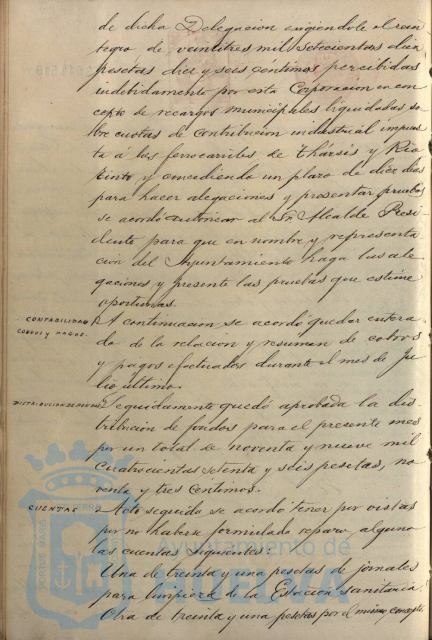 de dicha Delegacion exigiendole el rein
tegro de veintitres mil setecientas diez
pesetas diez y seis céntimos percibidas
indebidamente por esta Corporacion en con
cepto de recargos municipales liquidadas so
bre cuotas de Contribucion industrial impues
ta á los ferrocarriles de Thársis y Rio
tinto y concediendo un plazo de diez dias
para hacer alegaciones y presentar pruebas
se acordó autorizar al Sr. Alcalde Presi
dente para que en nombre y representa
cion del Ayuntamiento haga las ale
gaciones y presente las pruebas que estime
oportunas.
CONTABILIDAD
COBROS Y PAGOS.
A continuacion se acordó quedar entera
do de la relacion y resumen de cobros
y pagos efectuados durante el mes de Ju
lio último.
DISTRIBUCION DE FONDOS
Seguidamente quedó aprobada la dis
tribucion de fondos para el presente mes
por un total de noventa y nueve mil
cuatrocientas setenta y séis pesetas, no
venta y tres céntimos.
CUENTAS
Acto seguido se acordó tener por vistas
por no haberse formulado reparo alguno
las cuentas siguientes:
Una de treinta y una pesetas de jornales
para limpieza de la Estacion Sanitaria
Otra de treinta y una pesetas por el mismo concepto
Ayuntamiento de
HUELVA